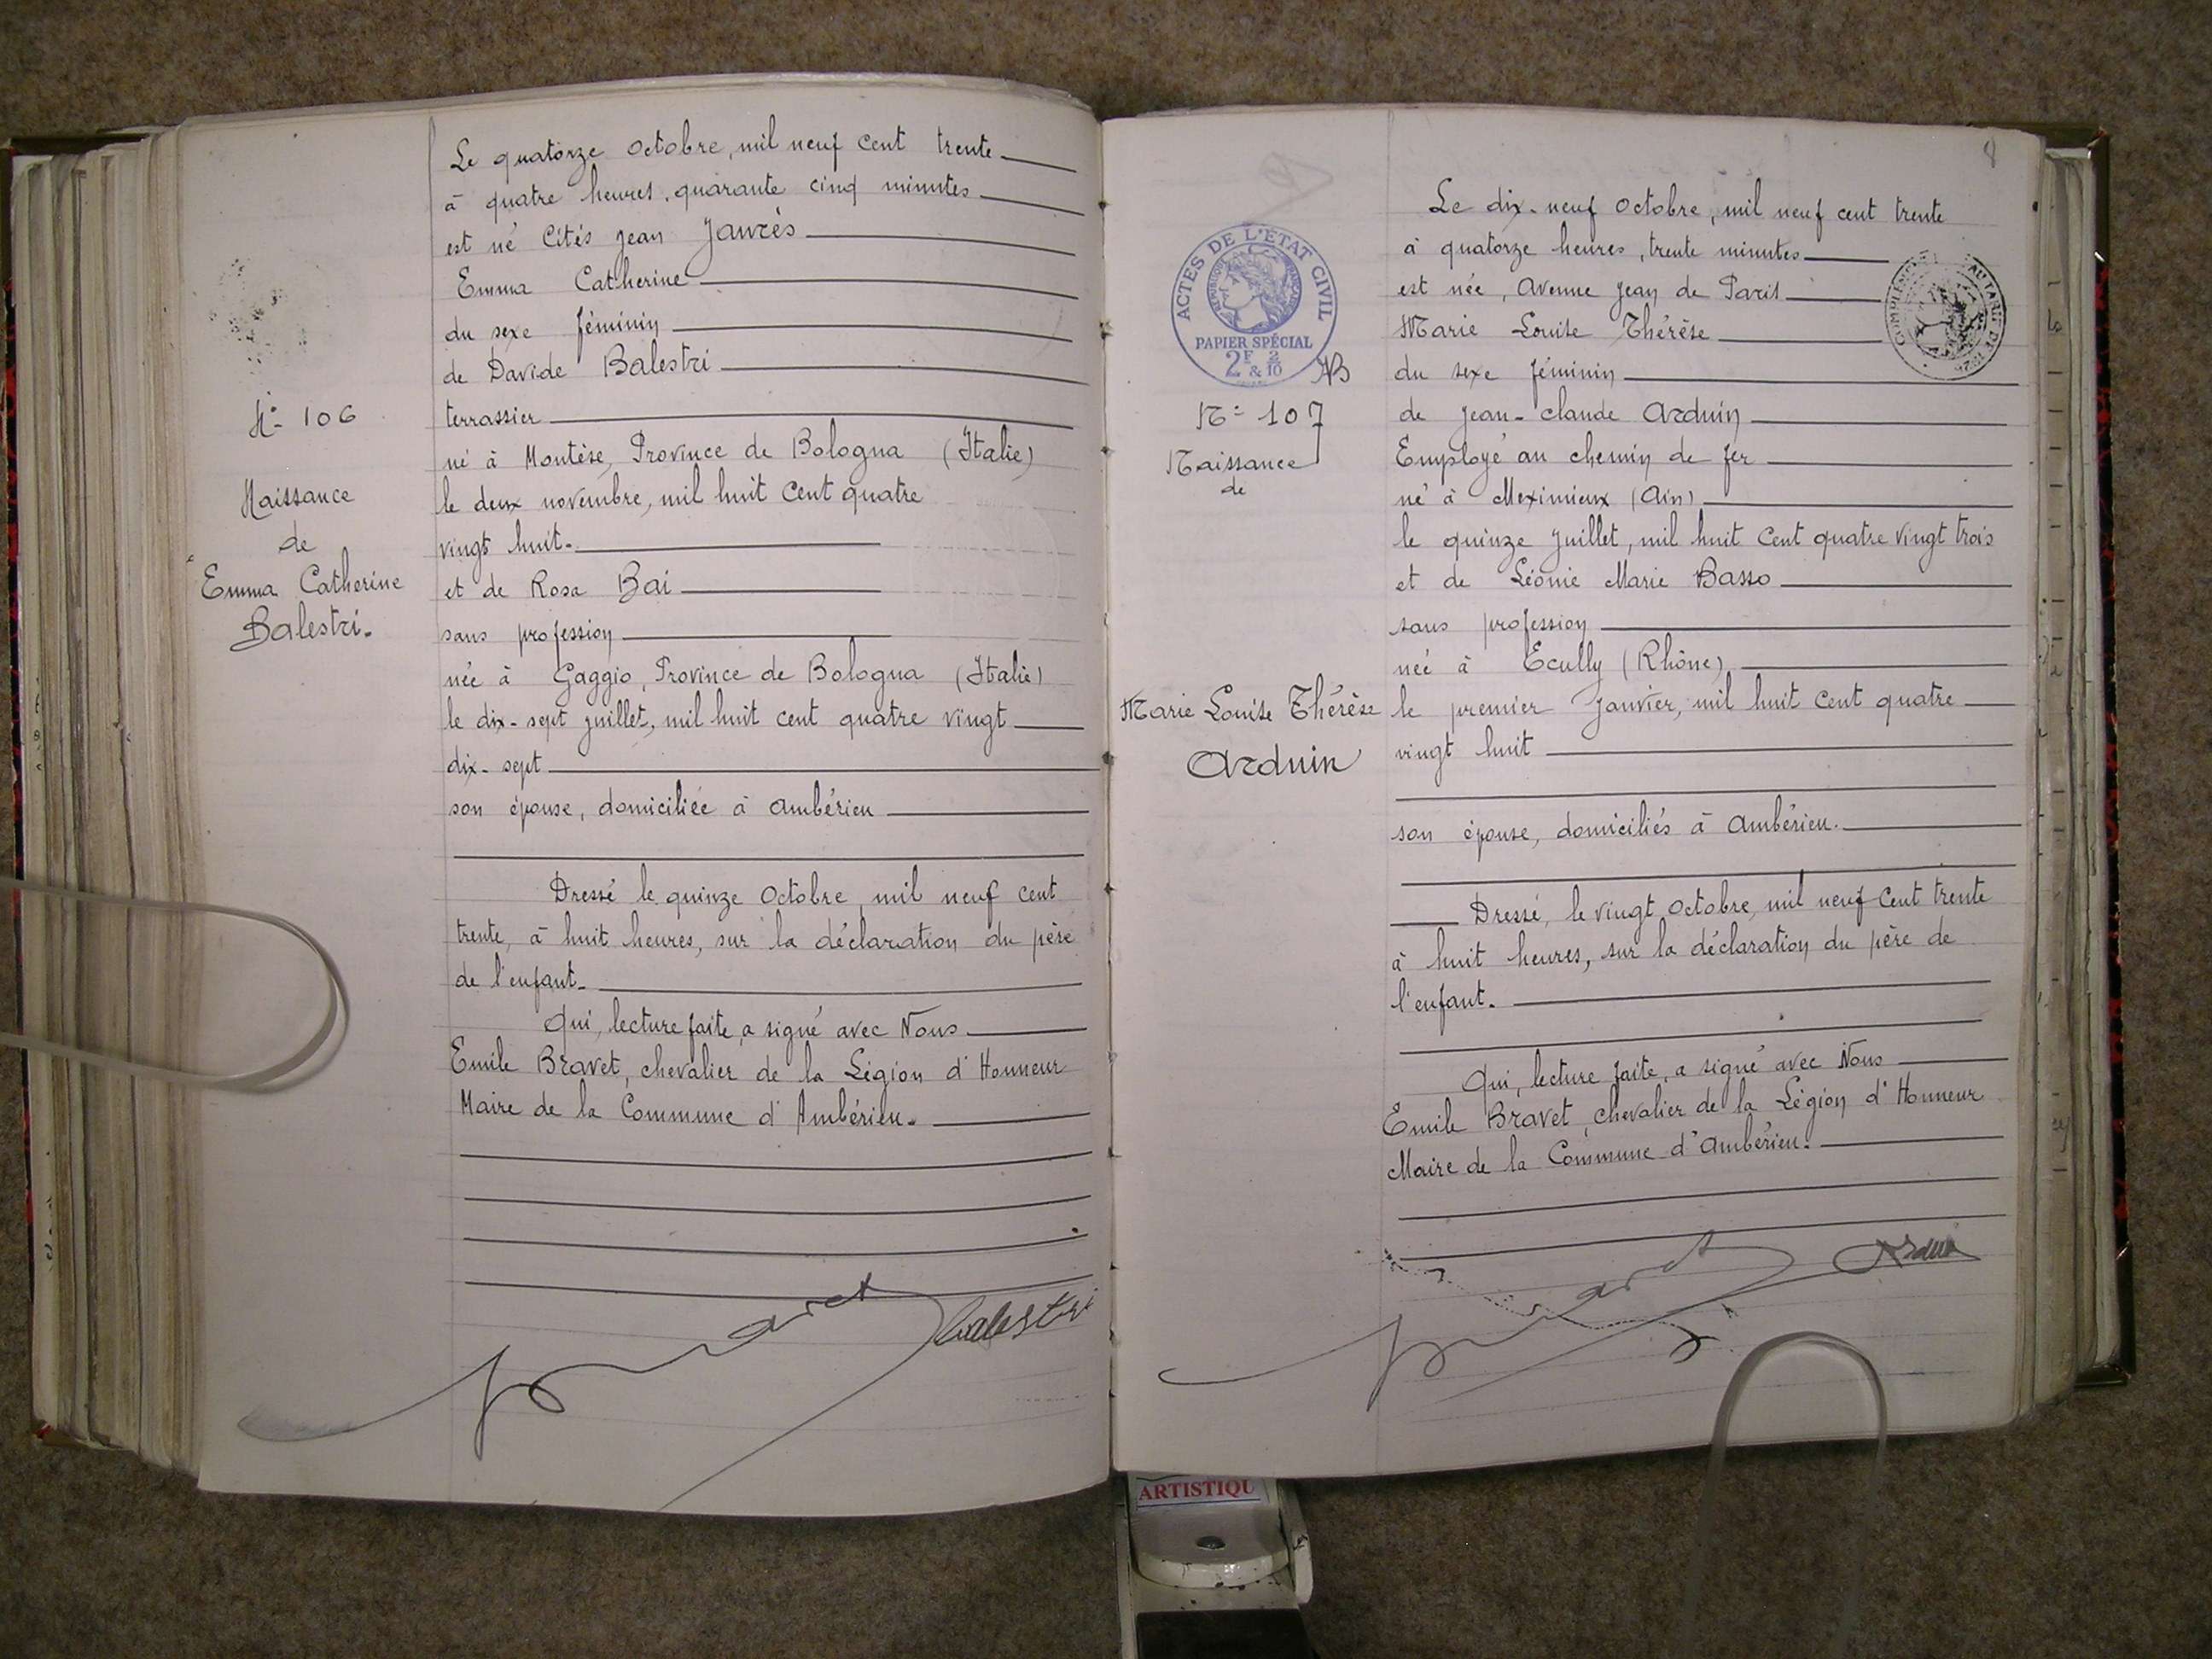 Le quatorze octobre, mil neuf cent trente
à quatre heures quarante cinq minutes
est né Cités Jean Jaurès
Emma Catherine
du sexe féminin
de Davide Balestri
terrassier
né à Montèse, Province de Bologna (Italie)
le deux novembre, mil huit cent quatre
vingt huit.
et de Rosa Bai
sans profession
née à Gaggio, Province de Bologna (Italie)
le dix-sept juillet, mil huit cent quatre vingt
dix-sept
son épouse, domiciliée à Ambérieu
Dressé le quinze Octobre mil neuf cent
trente, à huit heures, sur la déclaration du père
de l'enfant.
Qui, lecture faite, a signé avec Nous
Emile Bravet, chevalier de la Légion d'Honneur
Maire de la Commune d'Ambérieu.
Balestri
N° 106
Naissance
de
Emma Catherine
Balestri.
8
Le dix-neuf octobre, mil neuf cent trente
à quatorze heures, trente minutes
est née, Avenue Jean de Paris
Marie Louise Thérèse
du sexe féminin
de Jean-Claude Arduin
Employé au chemin de fer
né à Meximieux (Ain)
le quinze Juillet, mil huit cent quatre vingt trois
et de Léonie Marie Basso
sans profession
née à Ecully (Rhône)
le premier Janvier, mil huit cent quatre
vingt huit
son épouse, domiciliés à Ambérieu.
Dressé, le vingt octobre, mil neuf cent trente
à huit heures, sur la déclaration du père de
l'enfant.
Qui, lecture faite, a signé avec Nous
Emile Bravet, chevalier de la Légion d'Honneur
Maire de la Commune d'Ambérieu.
Arduin
ACTES DE L'ETAT CIVIL
RÉPUBLIQUE FRANÇAISE
PAPIER SPÉCIAL
2F & 2/10
N° 107
Naissance
de
Marie Louise Thérèse
Arduin
ARTISTIQU